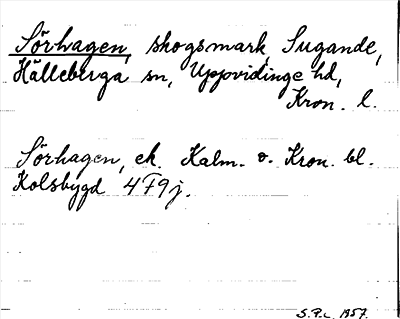 Sörhagen, skogsmark, Sugande,
Hälleberga sn, Uppvidinge hd,
Kron. l.
Sörhagen, ek. Kalm. o. Kron. bl.
Kolsbygd 4F9j.
S.P.L. 1957.